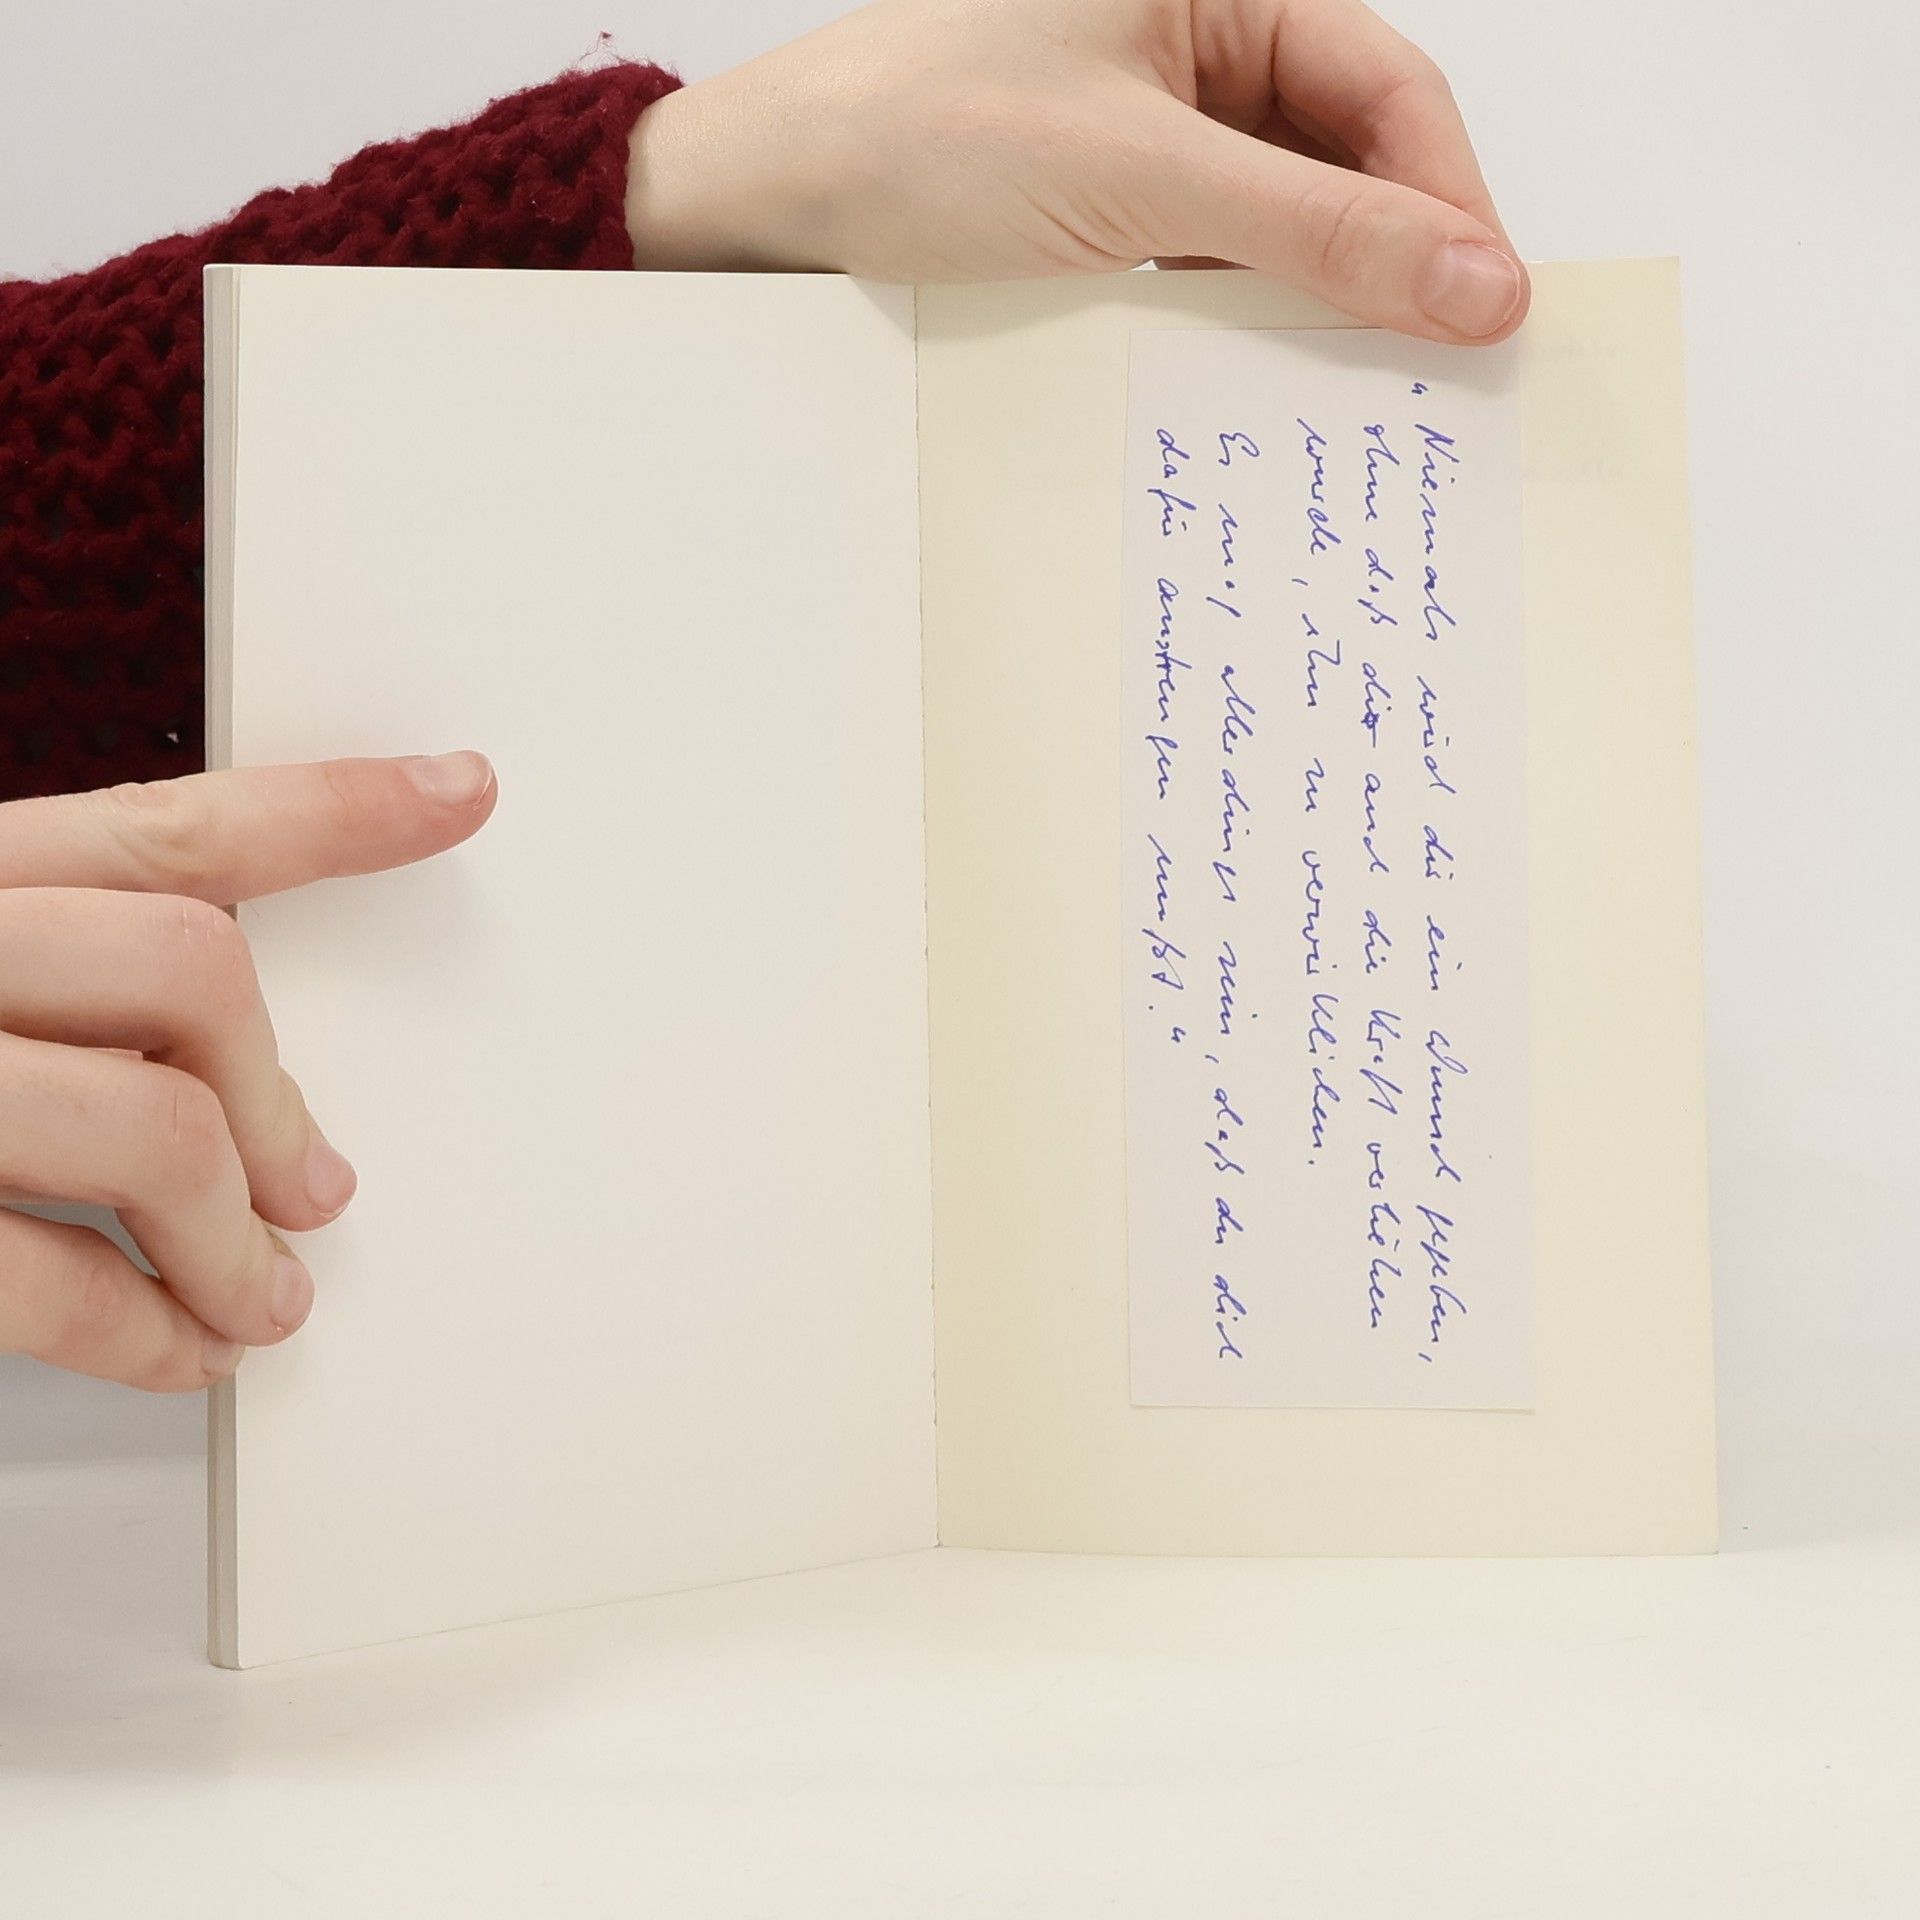 "Niemals wird dir ein Wunsch gegeben,
ohne daß dir auch die Kraft verliehen
wurde, ihn zu verwirklichen.
Es mag allerdings sein, daß du dich
dafür anstrengen mußt."